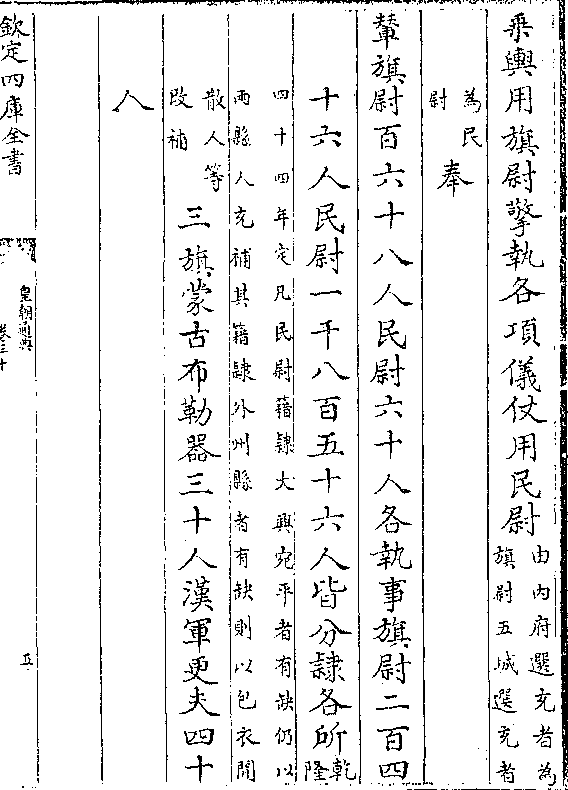 乘輿用旗尉擎執各項儀仗用民尉
由內府選充者為
旗尉五城選充者
為民
尉
奉
輦旗尉百六十八人民尉六十人各執事旗尉二百四
十六人民尉一千八百五十六人皆分隷各所
乾
隆
四十四年定凡民尉籍隷大興宛平者有缺仍以
兩縣人充補其籍隷外州縣者有缺則以包衣閒
散人等
改補
三旗蒙古布勒器三十人漢軍更夫四十
人
欽定四庫全書
皇朝通典
卷三十
五